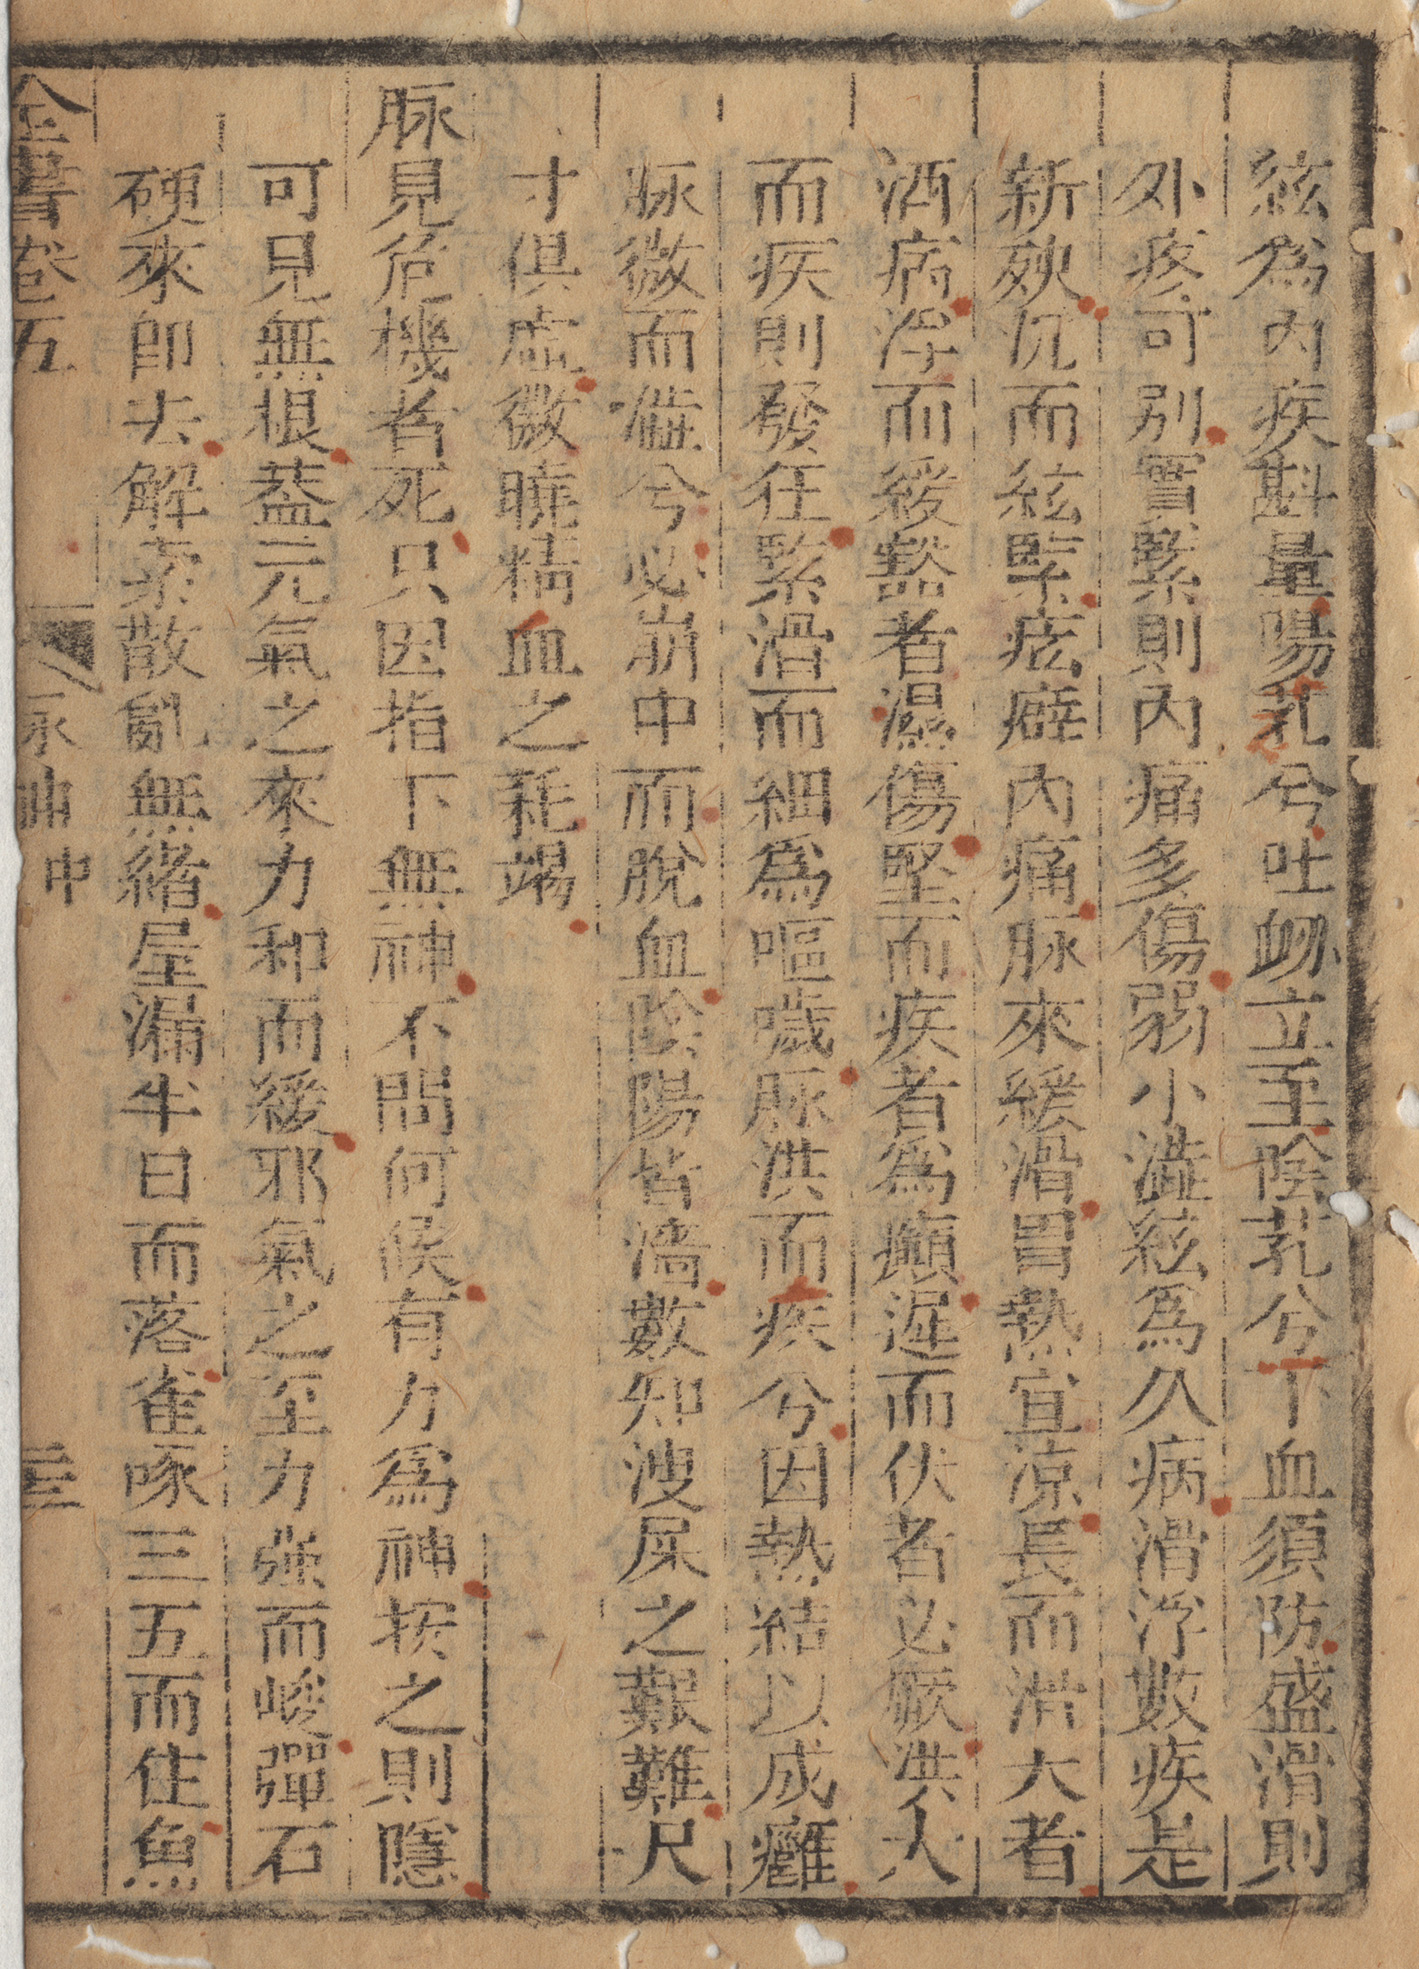 絃為內疾斟量陽芤兮吐衂立至陰芤兮下血須防盛滑則
外疼可別實緊則內痛多傷弱小澁絃為久病滑浮數疾是
新𣧑沉而絃緊痃癖內痛脉來緩滑胃熱宜涼長而滑大者
酒病浮而緩豁者濕傷堅而疾者為癲遲而伏者必厥洪大
而疾則發狂緊滑而細為嘔噦脉洪而疾兮因熱結以成癰
脉微而濇兮必崩中而脫血陰陽皆濇數知溲屎之艱難尺
寸俱虛微曉精血之耗竭
脉見危機者死只因指下無神不問何候有力為神按之則隱
可見無根蓋元氣之來力和而緩邪氣之至力強而峻彈石
硬來即去解索散亂無緒屋漏半日而落雀啄三五而住魚
全書卷五 永 神 中 三三